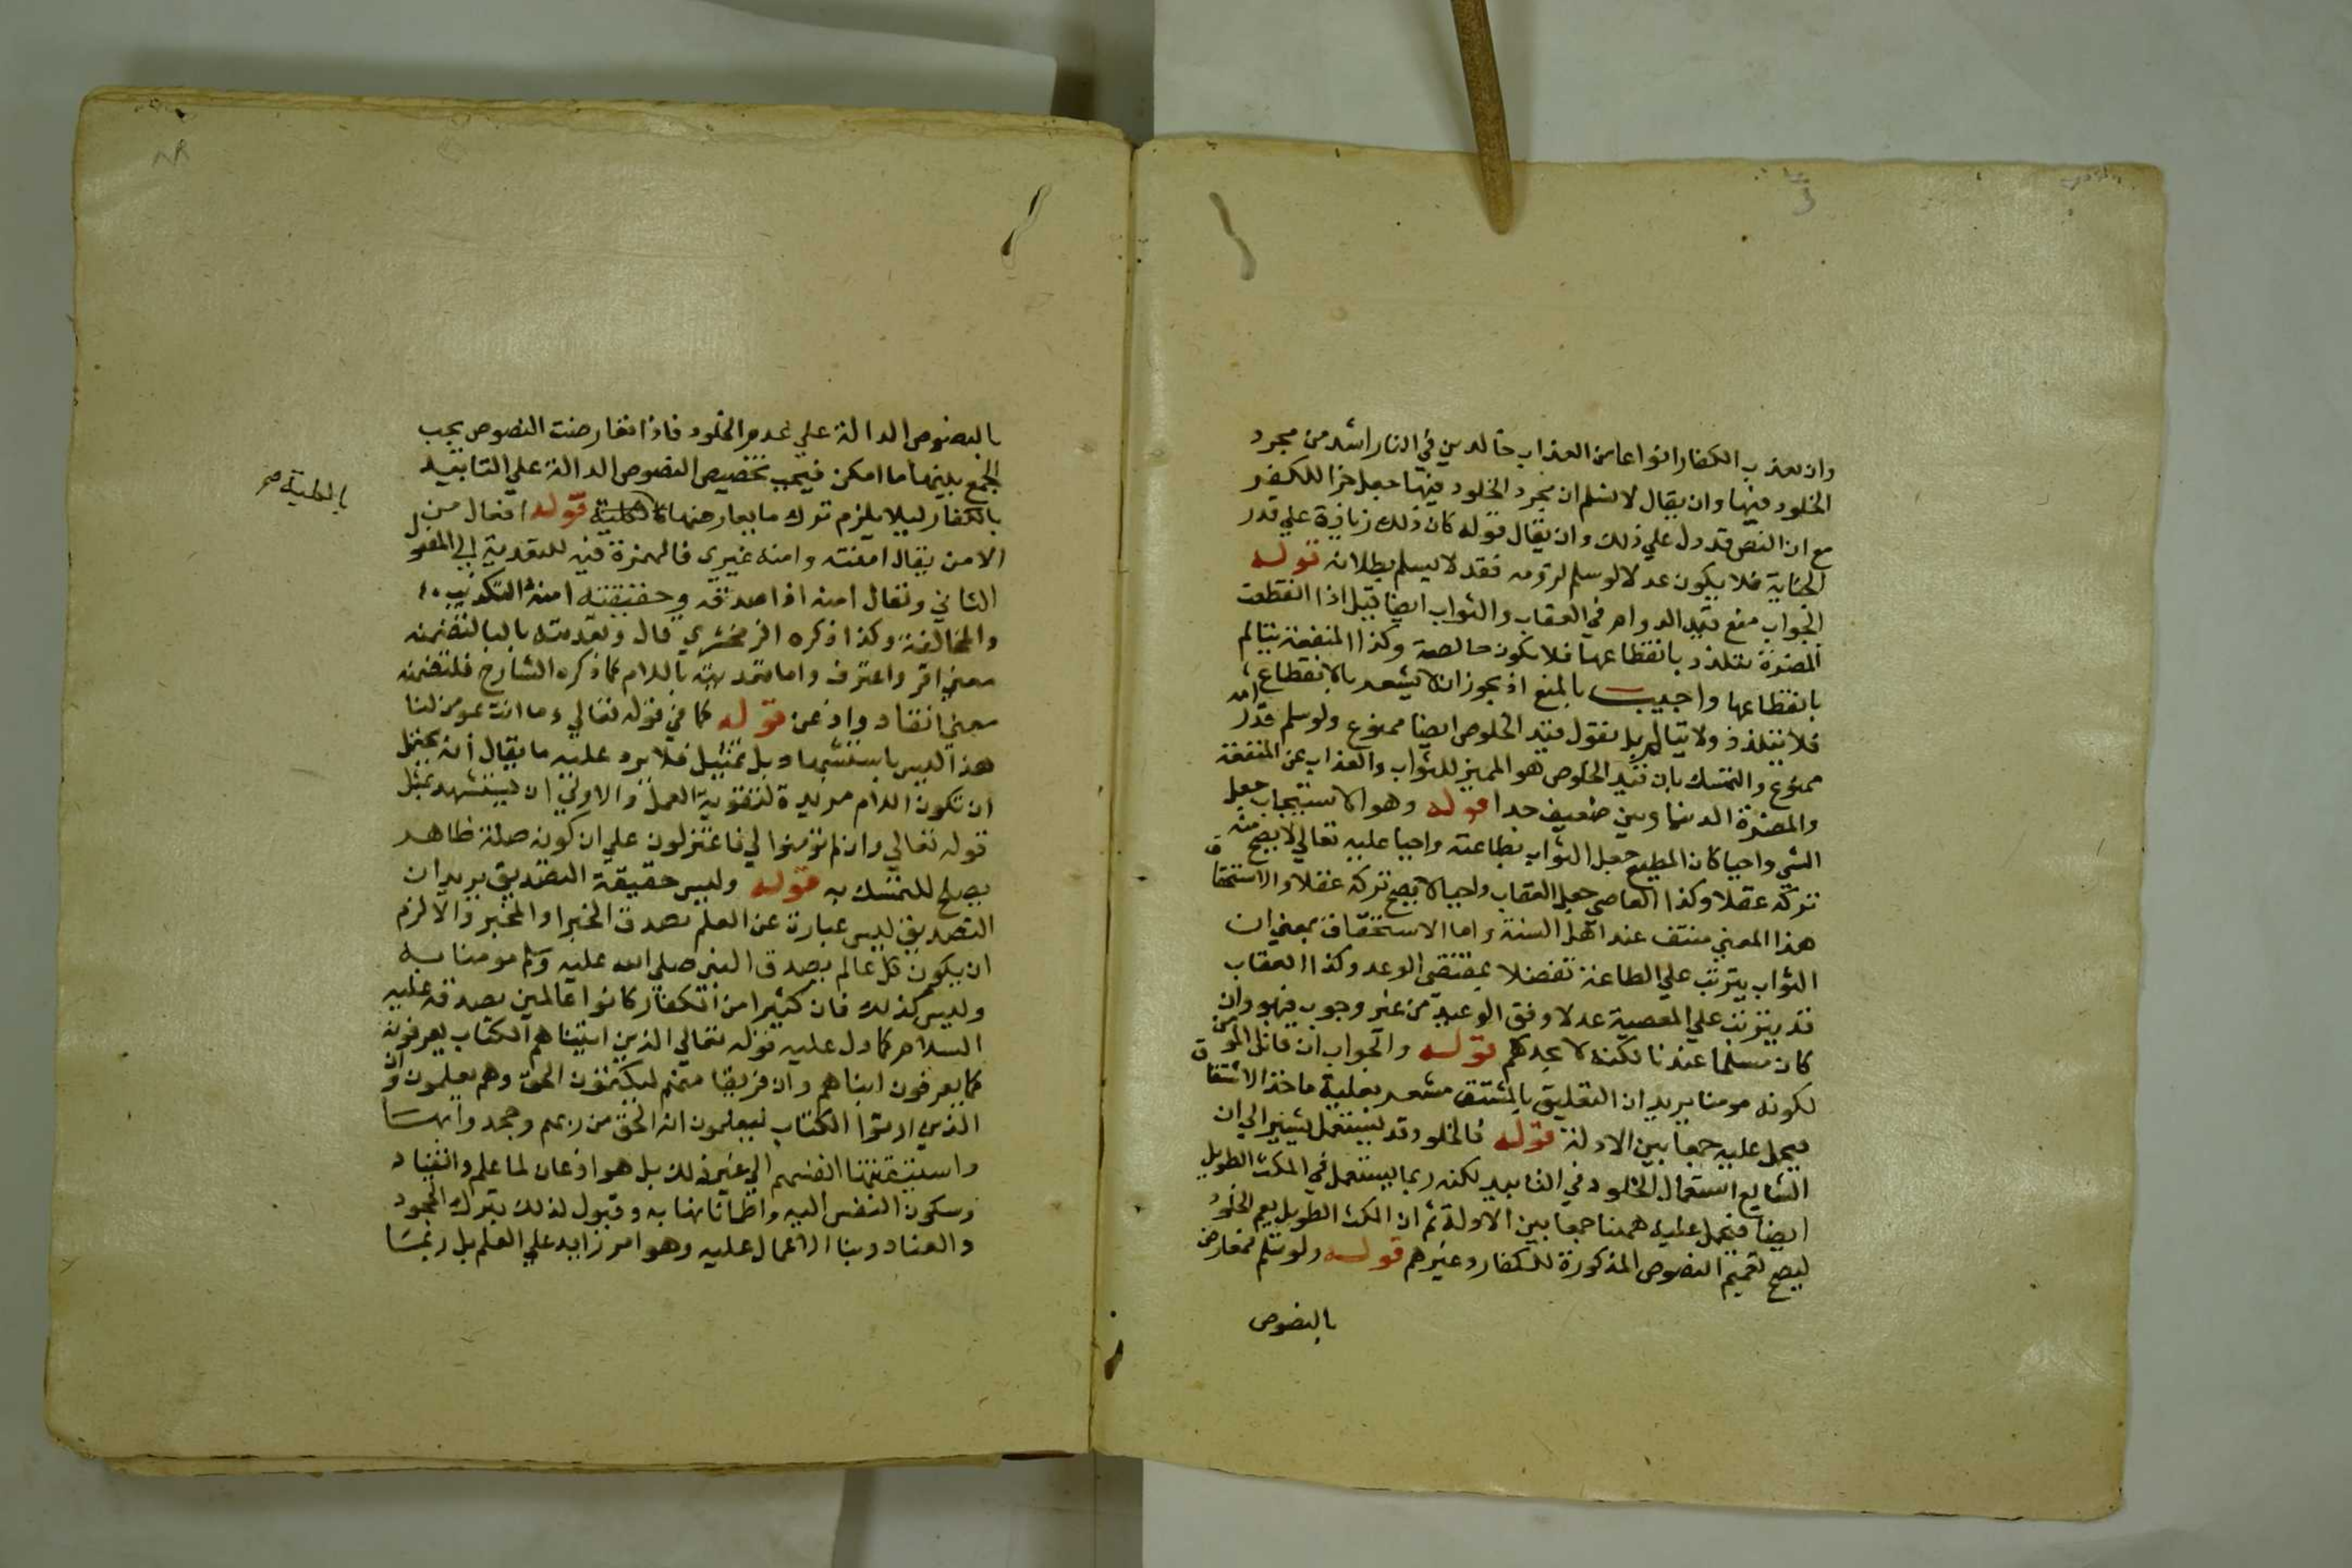 وان يعذب الكفار انواعا من العذاب خالدين في النار اشد من مجرد
الخلود فيها وان يقال لا نسلم ان مجرد الخلود فيها جعل جزا للكفر
مع ان النص قد دل علي ذلك وان يقال قوله كان ذلك زيادة علي قدر
الجناية فلا يكون عدلا لو سلم لزومه فقد لا يسلم بطلانه قوله
الجواب منع قيد الدوام في العقاب والثواب ايضا قيل اذا انقطعت
المضرة يتلذذ بانقطاعها فلا يكون خالصة وكذا المنفعة يتالم
بانقطاعها واجيب بالمنع اذ يجوز ان لا يشعر بالانقطاع
فلا يتلذذ ولا يتالم بل نقول قيد الخلوص ايضا ممنوع ولو سلم
ممنوع والتمسك بان قيد الخلوص هو المميز للثواب والعذاب عن المنفعة
والمضرة الدنياويين ضعيف جدا قوله وهو الاستيجاب جعل
الشي واجبا كان المطيع جعل الثواب بطاعته واجبا عليه تعالي لا يصح منه
تركه عقلا وكذا العاصي جعل العقاب واجبا لا يصح تركه عقلا والاستحقاق
هذا المعني منتف عند اهل السنة واما الاستحقاق بمعني ان
الثواب يترتب علي الطاعة تفضلا بمقتضي الوعد وكذا العقاب
قد يترتب علي المعصية عدلا وفق الوعيد من غير وجوب فهو وان
كان مسلما عندنا لكنه لا يجديكم قوله والجواب ان قاتل المؤمن
لكونه مومنا يريد ان التعليق بالمشتق مشعر بعلية ماخذ الاشتقاق
فيحمل عليه جمعا بين الادلة قوله فالخلود قد يستعمل يشير الي ان
الشايع استعمال الخلود في التابيد لكنه ربما يستعمل في المكث الطويل
ايضا فيحمل عليه ههنا جمعا بين الادلة ثم ان المكث الطويل يعم الخلود
ليصح تعميم النصوص المذكورة للكفار وغيرهم قوله ولو سلم فمعارض
بالنصوص
بالنصوص الدالة علي عدم الخلود فاذا تعارضت النصوص يجب
الجمع بينها ما امكن فيجب تخصيص النصوص الدالة علي التابيد
بالكفار ليلا يلزم ترك ما يعارضها قوله افعال من
بالكلية صح
الامن يقال امنته وامنه غيري فالهمزة فيه للتعدية الي المفعول
الثاني ويقال امنه اذا صدقه وحقيقته امنه التكذيب
والمخالفة وكذا ذكره الزمخشري قال وتعديته بالبا لتضمنه
معني اقر واعترف واما تعديته باللام كما ذكره الشارح فلتضمنه
معني انقاد واذعن قوله كما في قوله تعالي وما انت بمومن لنا
هذا ليس باستشهاد بل تمثيل فلا يرد عليه ما يقال انه يحتمل
ان تكون اللام مزيدة لتقوية العمل والاولي ان يستشهد بمثل
قوله تعالي وان لم تومنوا لي فاعتزلون علي ان كونه صلة ظاهر
يصلح للتمسك به قوله وليس حقيقة التصديق يريد ان
التصديق ليس عبارة عن العلم بصدق الخبر او المخبر والا لزم
ان يكون كل عالم بصدق النبي صلي الله عليه وسلم مومنا به
وليس كذلك فان كثيرا من الكفار كانوا عالمين بصدقه عليه
السلام كما دل عليه قوله تعالي الذين اتيناهم الكتاب يعرفونه
كما يعرفون ابناهم وان فريقا منهم ليكتمون الحق وهم يعلمون وان
الذين اوتوا الكتاب ليعلمون انه الحق من ربهم وجحدوا بها
واستيقنتها انفسهم الي غير ذلك بل هو اذعان لما علم وانقياد
وسكون النفس اليه واطمانانها به وقبول لذلك بترك الجحود
والعناد وبنا الاعمال عليه وهو امر زايد علي العلم بل ربما